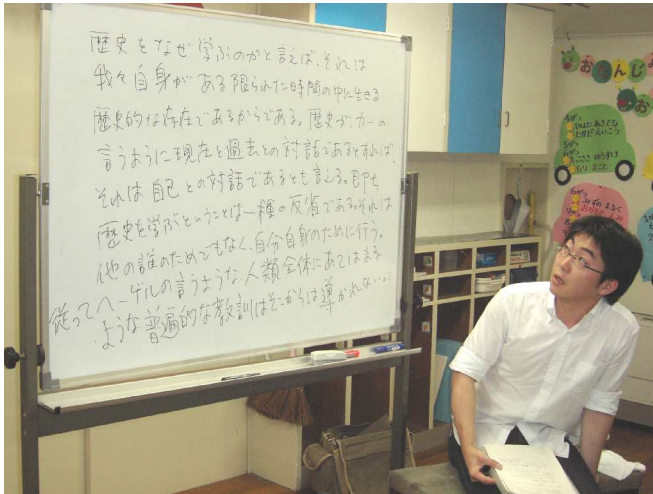 歴史をなぜ学ぶのかと言えば、それは
我々自身がある限られた時間の中に生きる
歴史的な存在であるからである。歴史が、カーの
言うように現在と過去との対話であるとすれば、
それは自己との対話であるとも言える。即ち
歴史を学ぶということは一種の反省である。それは
他の誰のためでもなく、自分自身のために行う。
従ってヘーゲルの言うような、人類全体にあてはまる
ような普遍的な教訓はそこからは導かれない。
おたんじ
お
4がつ
5がつ
6がつ